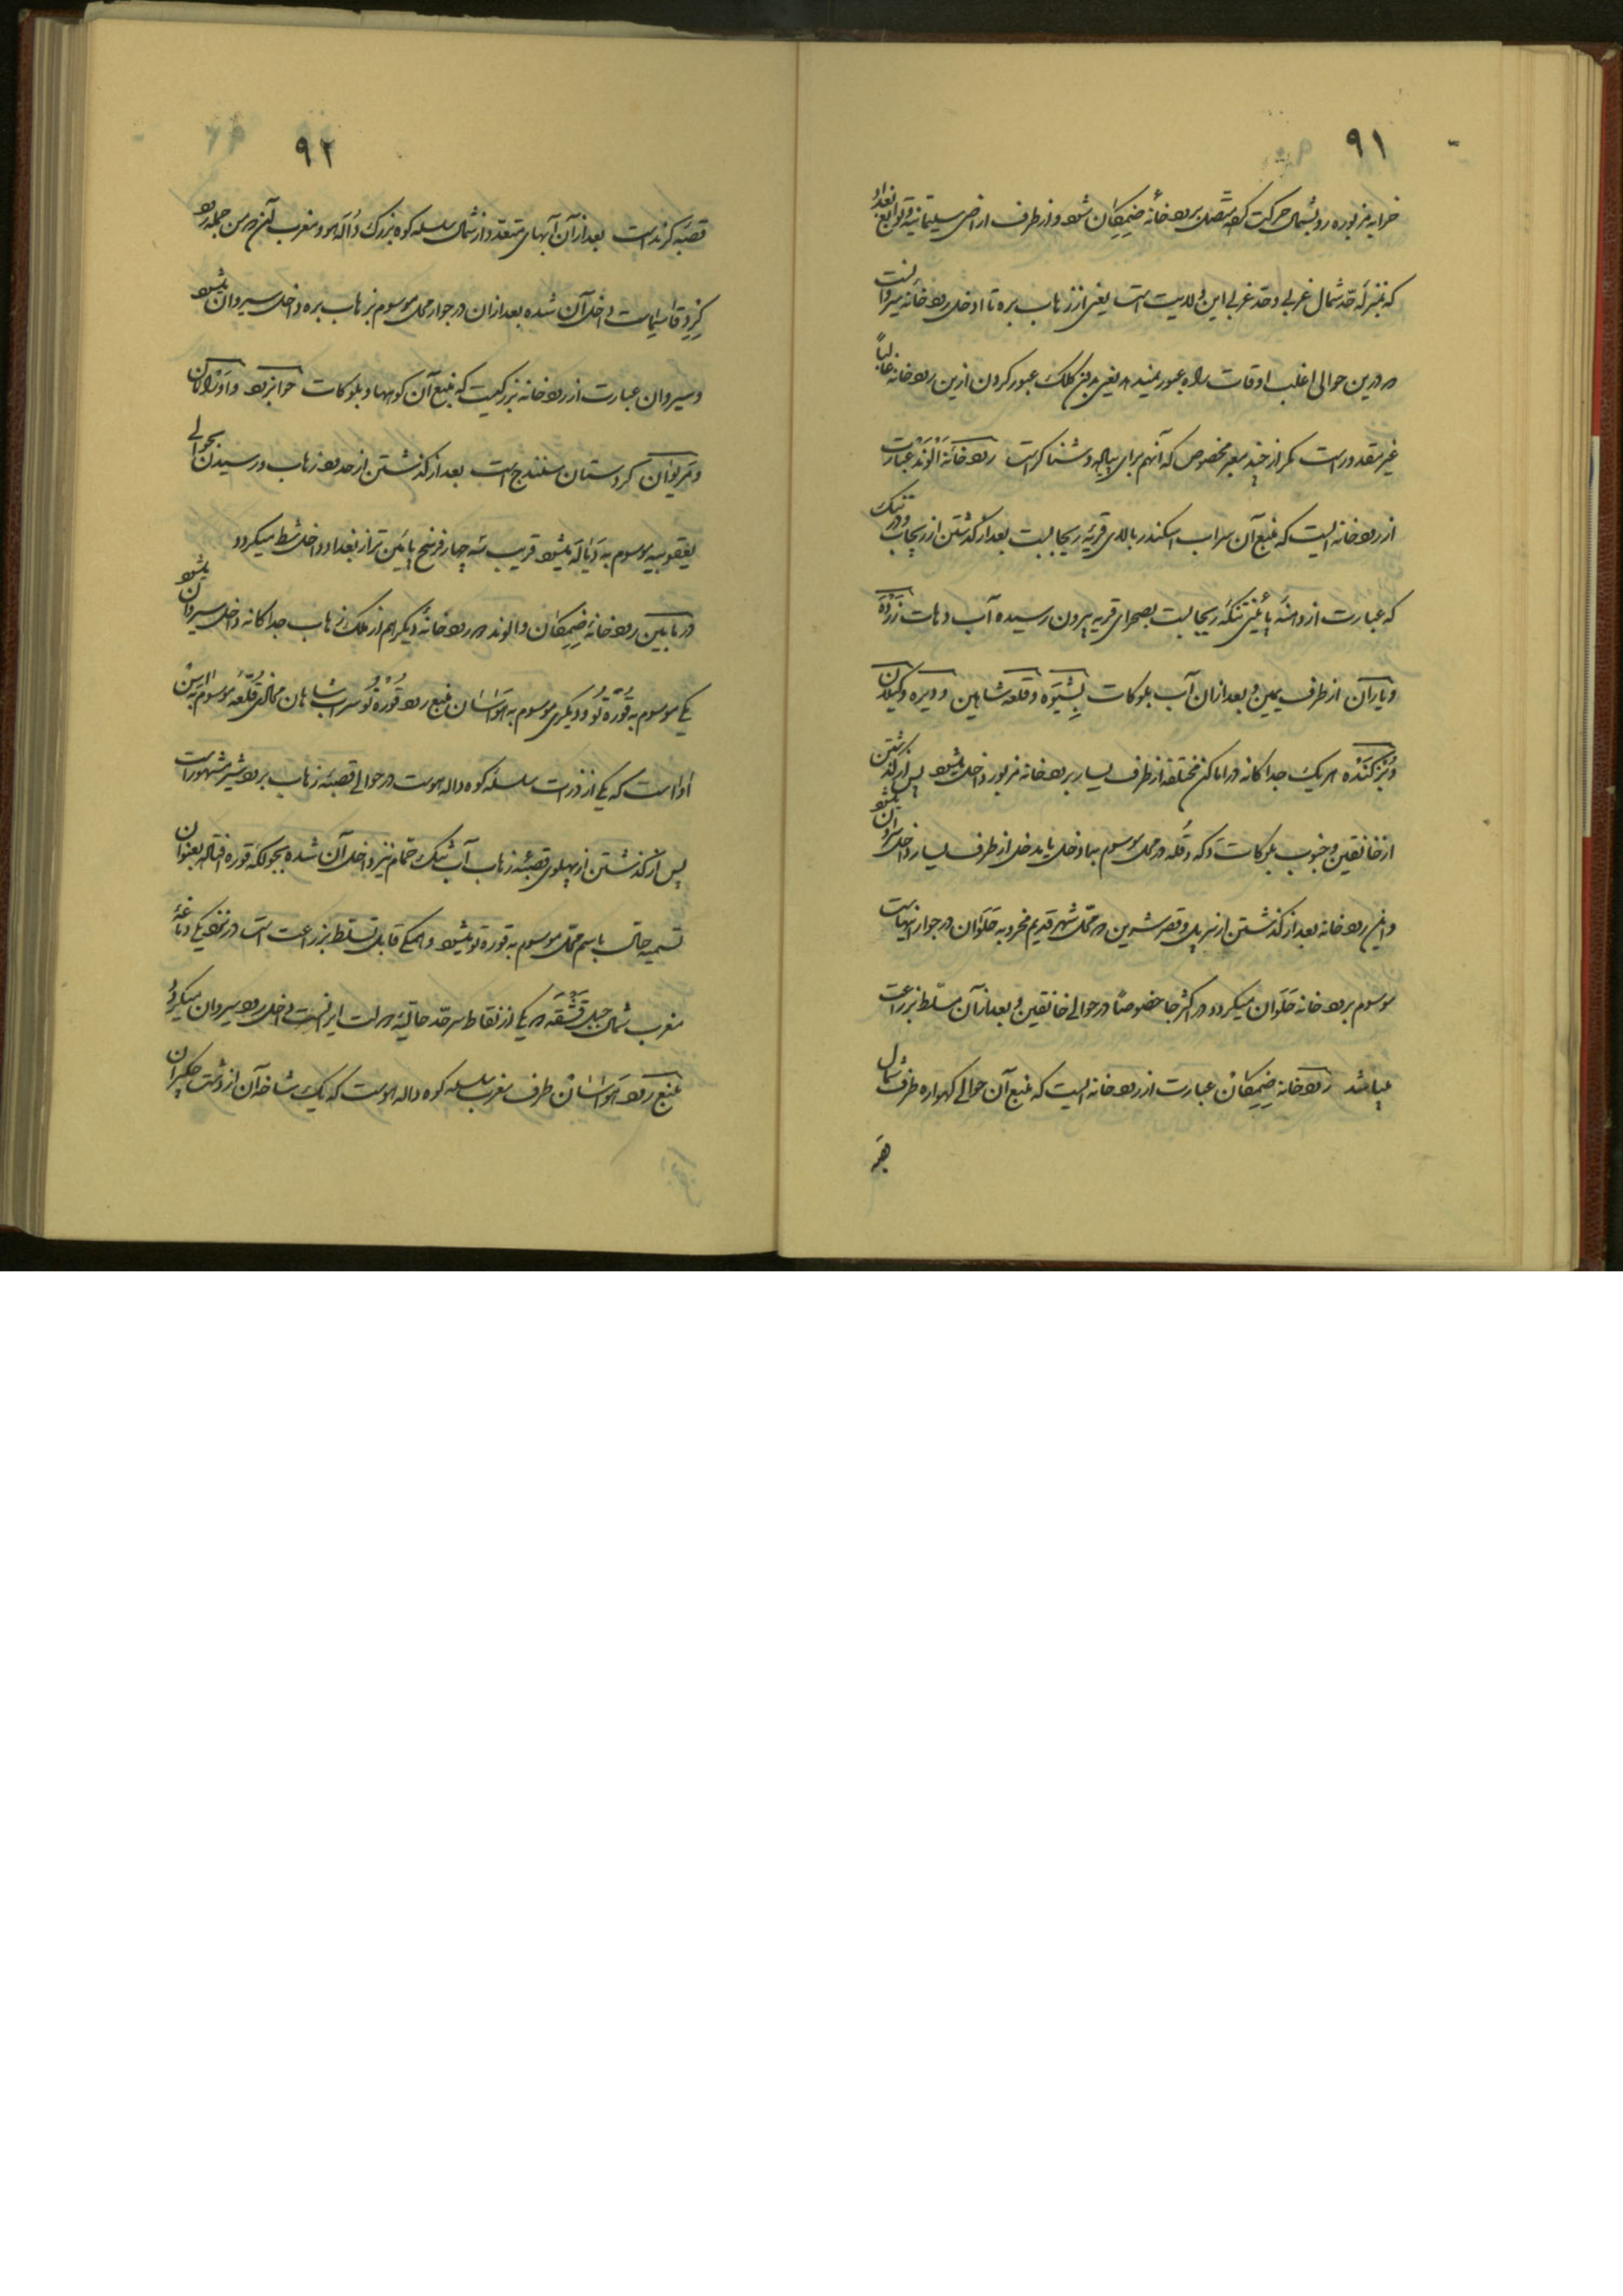 ۹۱
خرابه مزبوره رو بشمال حرکت کرده متصل برودخانه ضیمکان شود و از طرف اراضی سلیمانیه و توابع بغداد
که بمنزله حد شمال غربی و حد غربی این ولایت است یعنی از زهاب بره تا داخل رودخانه سیروانست
و درین حوالی اغلب اوقات راه عبور نمیدهد یعنی بدون کلک عبور کردن ازین رودخانه غالباً
غیر مقدور است مگر از چند معبر مخصوص که آنهم برای پیاده و شناگر است رودخانه الوند عبارت
از رودخانه ایست که منبع آن سراب اسکندر بالای قریه ریجابست بعد از گذشتن از ریجاب و در تنگ
که عبارت از دامنه پائینی تنگه ریجابست بصحرای قریه بیرون رسیده آب دهات زرده
و یاران از طرف یمین و بعد از آن آب بلوکات پشیوه و قلعه شاهین و دیره و گیلان
و بزکنده هر یک جداگانه در اماکن مختلفه از طرف یسار برودخانه مزبور داخل میشود پس از گذشتن
از خانقین و جنوب بلوکات دکه و قله در محل موسوم بماد خل یا بدخل از طرف یسار داخل سیروان میشود
و این رودخانه بعد از گذشتن از سرپل و قصر شیرین و محل شهر قدیم مخروبه حلوان در جوار اینهاست
موسوم برودخانه حلوان میگردد در اکثر جا خصوصاً در حوالی خانقین و بعد از آن مسلط بزراعت
میباشد رودخانه ضیمکان عبارت از رودخانه ایست که منبع آن حوالی گهواره طرف شمال
قصبه
۹۲
قصبه کرند است بعد از آن آبهای متعدد از شمال سلسله کوه بزرگ دالاهو و مغرب آن و من جمله رود
داخل آن شده بعد از آن در جوار محل موسوم بزهاب بره داخل سیروان میشود
و سیروان عبارت از رودخانه بزرگیست که منبع آن کوهها و بلوکات جوانرود و اورامان
و مریوان کردستان سنندج است بعد از گذشتن از حدود زهاب و رسیدن بحوالی
یعقوبیه موسوم به دیاله میشود قریب سه چهار فرسخ پائین تر از بغداد داخل شط میگردد
در ما بین رودخانه ضیمکان و الوند دو رودخانه دیگر هم از ملک زهاب جداگانه داخل سیروان میشود
یکی موسوم به قوره تو و دیگری موسوم به هواسان منبع رود قوره تو سراب شاهان محاذی قله موسوم به
است که یکی از ذروات سلسله کوه دالاهوست در حوالی قصبه زهاب برود شیر مشهور است
پس از گذشتن از پهلوی قصبه زهاب آب تنگ حمام نیز داخل آن شده بجولگه قوره افتاده بعنوان
تسمیه حال باسم محل موسوم به قوره تو میشود و همگی قابل تسلط بزراعت است در نزدیکی دماغه
مغرب شمال جبل قشقه که یکی از نقاط سرحد حالیه دولت ایرانست داخل رود سیروان میگردد
منبع رود هواسان طرف مغرب سلسله کوه دالاهوست که یک شاخه آن از دشت جگیران